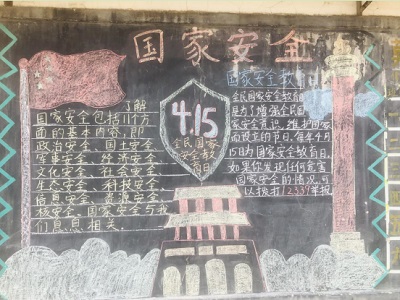 国家安全
了解
国家安全包括11个方
面的基本内容,即
政治安全、国土安全、
军事安全、经济安全、
文化安全、社会安全、
生态安全、科技安全、
信息安全、资源安全、
核安全。国家安全与我
们息息相关。
4.15
全民国家
安全教
育日
国家安全教
全民国家安全教育日
是为了增强全民国
家安全意识,维护国家
安全而设立的节日。每年4月
15日为国家安全教育日。
如果你发现任何危害
国家安全的情况,可
以拨打12339举报